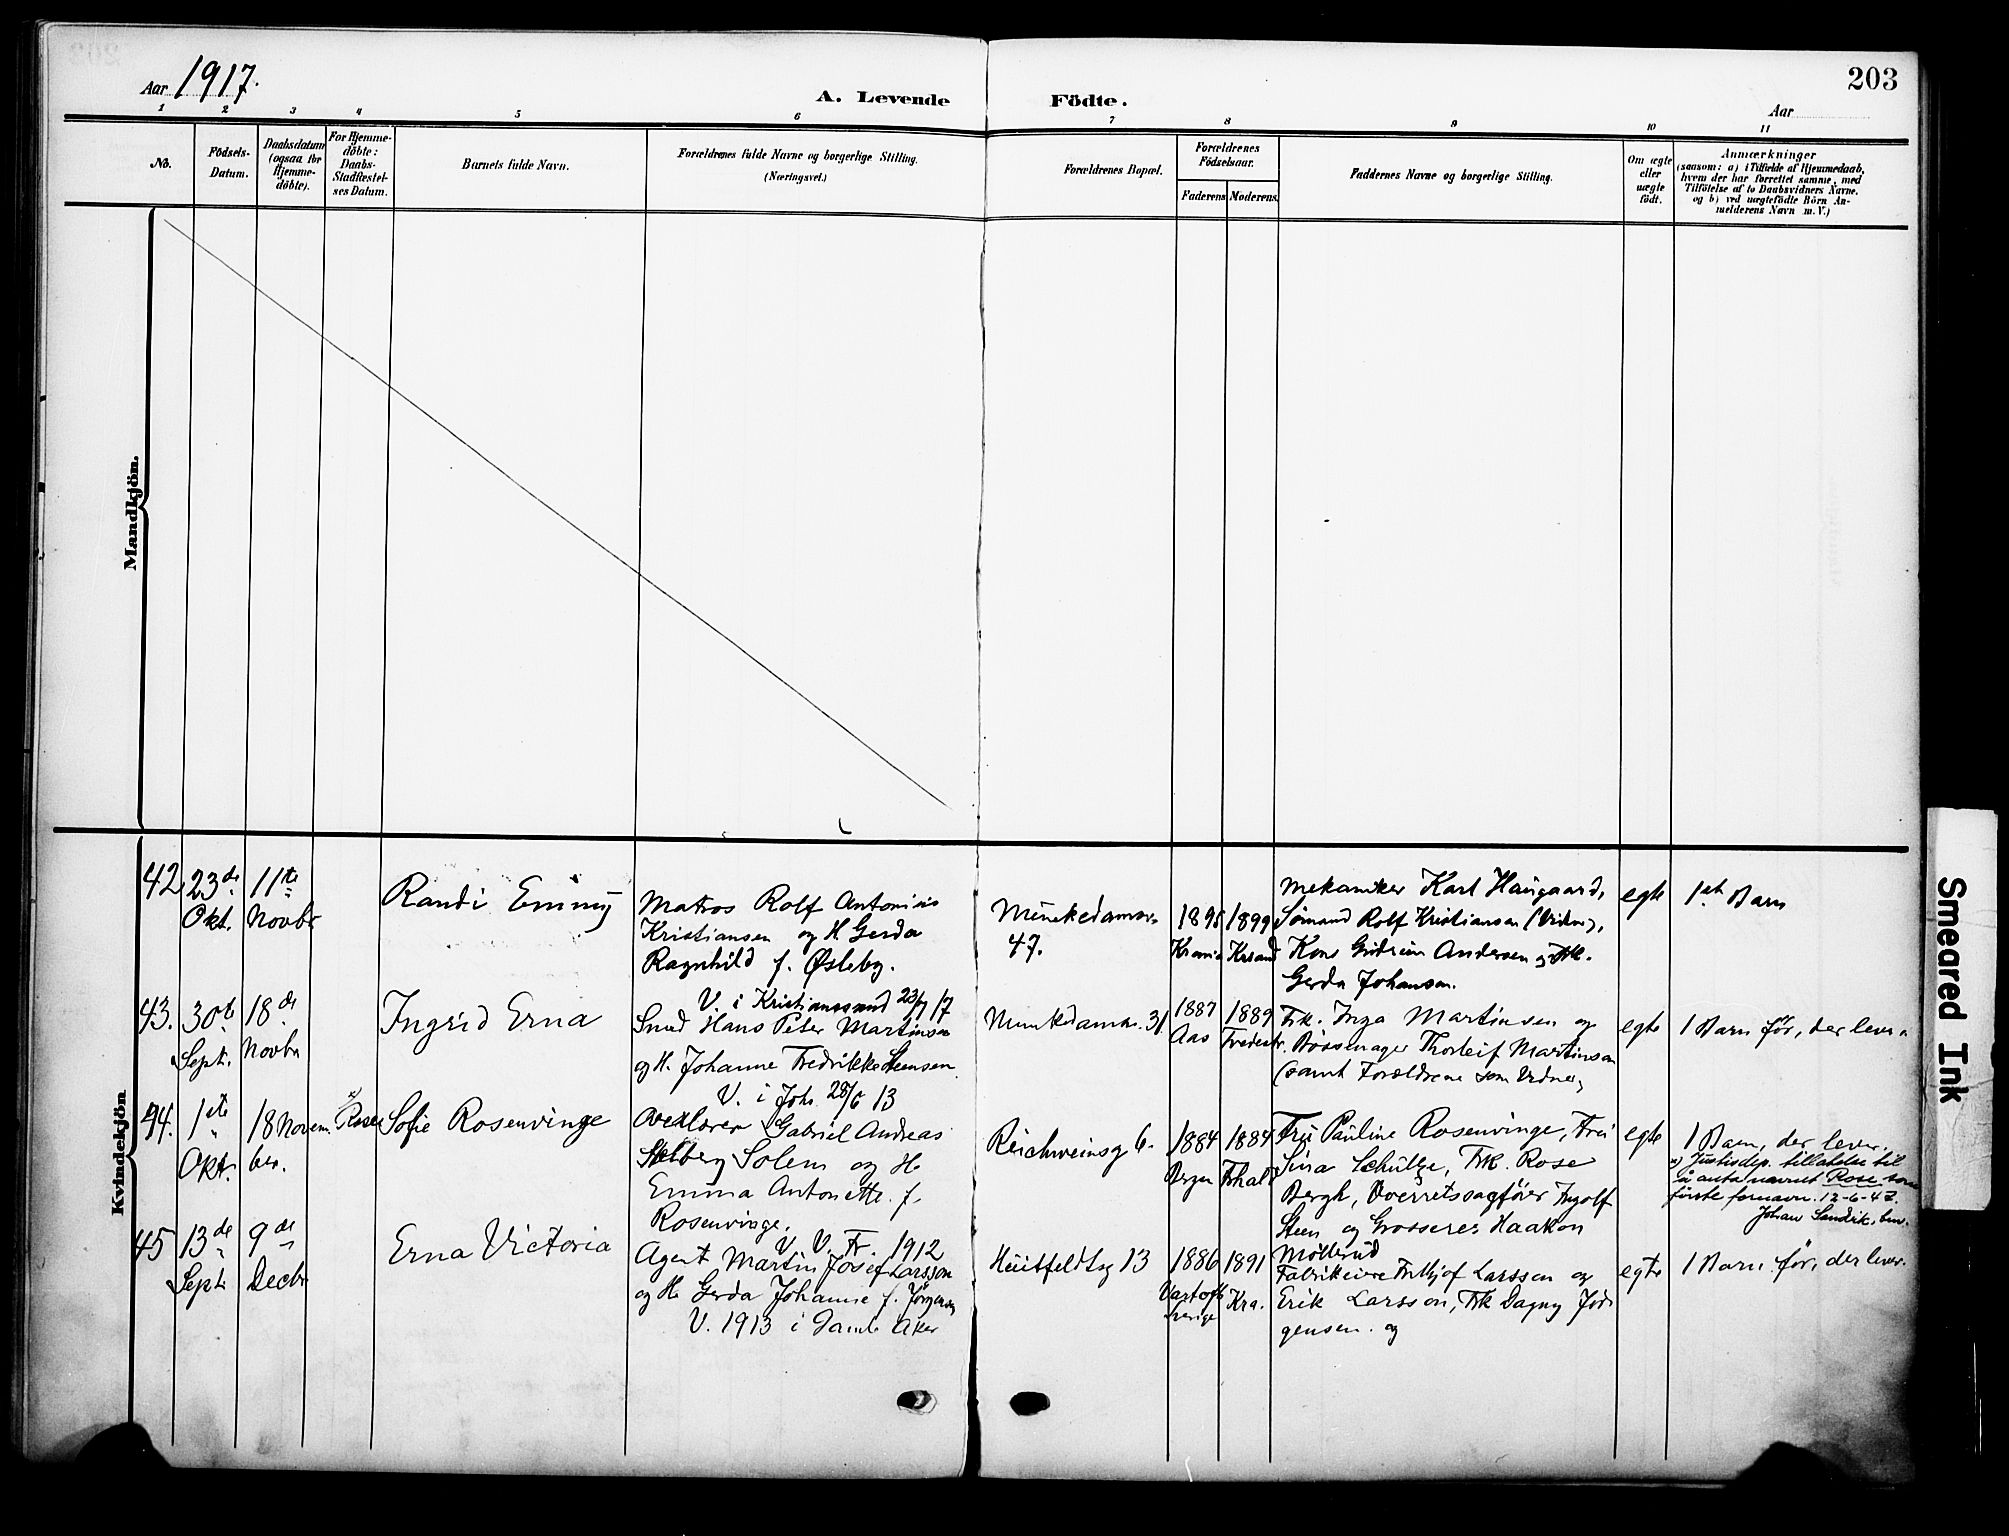 203
Aar 1917.
A. Levende Födte.
Aar
1 2 3 4 5 6 7 8 9 10 11
No.
Födsels-
Datum.
Daabsdatum
(ogsaa for
Hjemme-
döbte).
For Hjemme-
döbte:
Daabs-
Stadfæstel-
ses Datum.
Barnets fulde Navn.
Forældrenes fulde Navne og borgerlige Stilling.
(Næringsvei.)
Forældrenes Bopæl.
Forældrenes
Födselsaar.
Faderens Moderens.
Faddernes Navne og borgerlige Stilling.
Om ægte
eller
uægte
födt.
Anmærkninger
(saasom: a) i Tilfælde af Hjemmedaab,
hvem der har forrettet samme, med
Tilföielse af to Daabsvidners Navne,
og b) ved uægtefödte Börn An-
melderens Navn m. V.)
Mandkjön.
Kvindekjön
42
23de
Okt.
11te
Novbr
Randi Emmy
Matros Rolf Antonius
Kristiansen og H. Gerda
Ragnhild f. Østeby.
V. i Kristianssund 23/7 17
Munkedamsv.
47.
1895
1899
Mekaniker Karl Haugaard,
Sømand Rolf Kristiansen (Vidne),
Kone Gudrun Andersen og Frk.
Gerda Johansen.
egte
1ste Barn
43.
30te
Sept.
18de
Novbr
Ingrid Erna
Smed Hans Peter Martinsen
og H. Johanne Fredrikke Steensen
V. i Joh. 28/6 13
Munkedamsv. 31
1887
Aas
1889
Fredrst.
Frk. Inga Martinsen og
Børsemager Thorleif Martinsen
(samt Forældrene som Vidner)
egte
1 Barn før, der lever
44.
1ste
Okt.
18 Novem
ber.
x) Rose
Sofie Rosenvinge
Overlærer Gabriel Andreas
Stalberg Solem og H.
Emma Antonette f.
Rosenvinge.
V. V. Fr. 1912
Reichweinsg 6.
1884
Bergen
1884
Frhald
Fru Pauline Rosenvinge, Fru
Sina Schultze, Frk. Rose
Bergh, Overretssagfører Ingolf
Steen og Grosserer Haakon
Møllerud
egte
1 Barn, der lever.
x) Justisdep. tillatelse til
å anta navnet Rose som
første fornavn. 12-6-42.
45
13de
Sept.
9de
Decbr
Erna Victoria
Agent Martin Josef Larsson
og H. Gerda Johanne f. Jørgensen
V. 1913 i Gamle Aker
Huitfeldtsg 13
1886
Vartofts
Sverige
1891
Kra.
Fabrikeier Frithjof Larsson og
Erik Larsson, Frk Dagny Jør-
gensen. og
egte
1 Barn før, der lever.
Smeared Ink